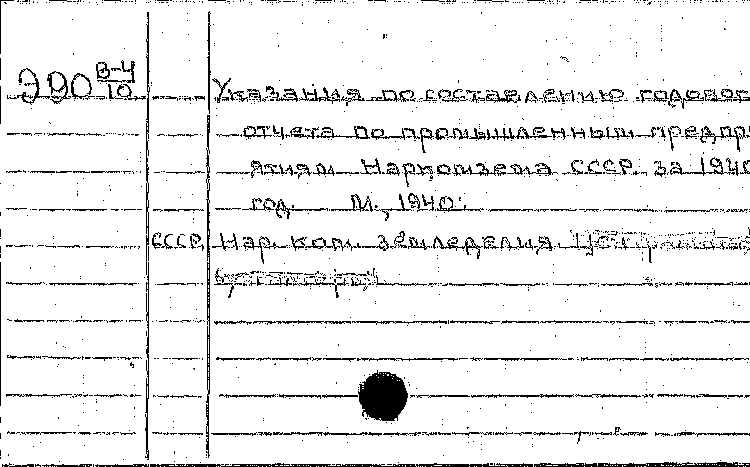 Э90 В-4/10
Указания по составлению годовог
отчета по промышленным предпри
ятиям Наркомзема СССР за 1940
год. М., 1940.
СССР. Нар. ком. земледелия.